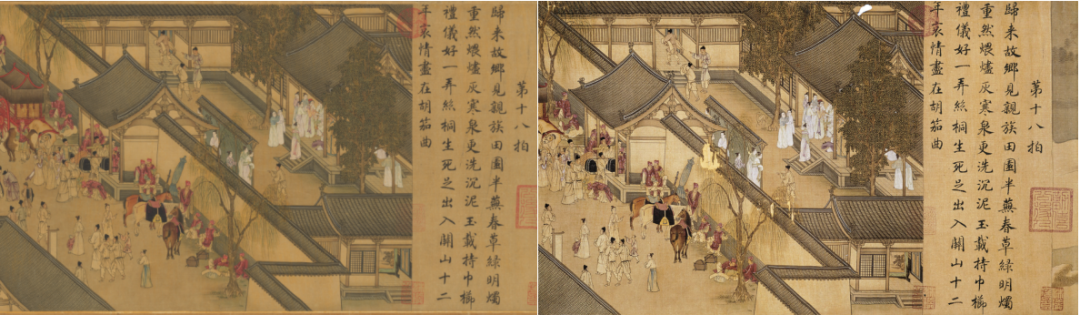 第十八拍
歸来故鄉見親族田園半蕪春草緑明燭
重然煨燼灰寒泉更洗沉泥玉載持巾櫛
禮儀好一弄絲桐生死足出入關山十二
年哀情盡在胡笳曲
第十八拍
歸来故鄉見親族田園半蕪春草緑明燭
重然煨燼灰寒泉更洗沉泥玉載持巾櫛
禮儀好一弄絲桐生死足出入關山十二
年哀情盡在胡笳曲